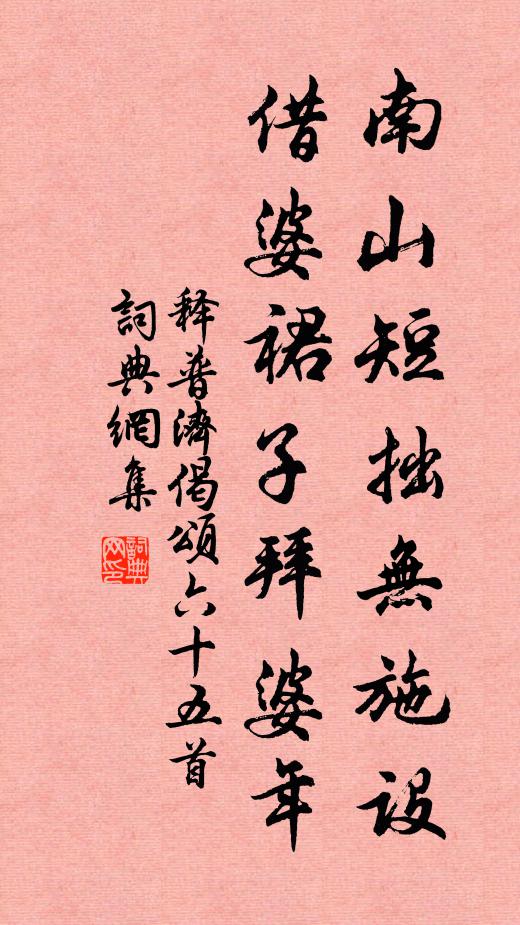 南山短拙無施設
借婆裙子拜婆年
释普濟偈頌六十五首
詞典網集
詞典网印